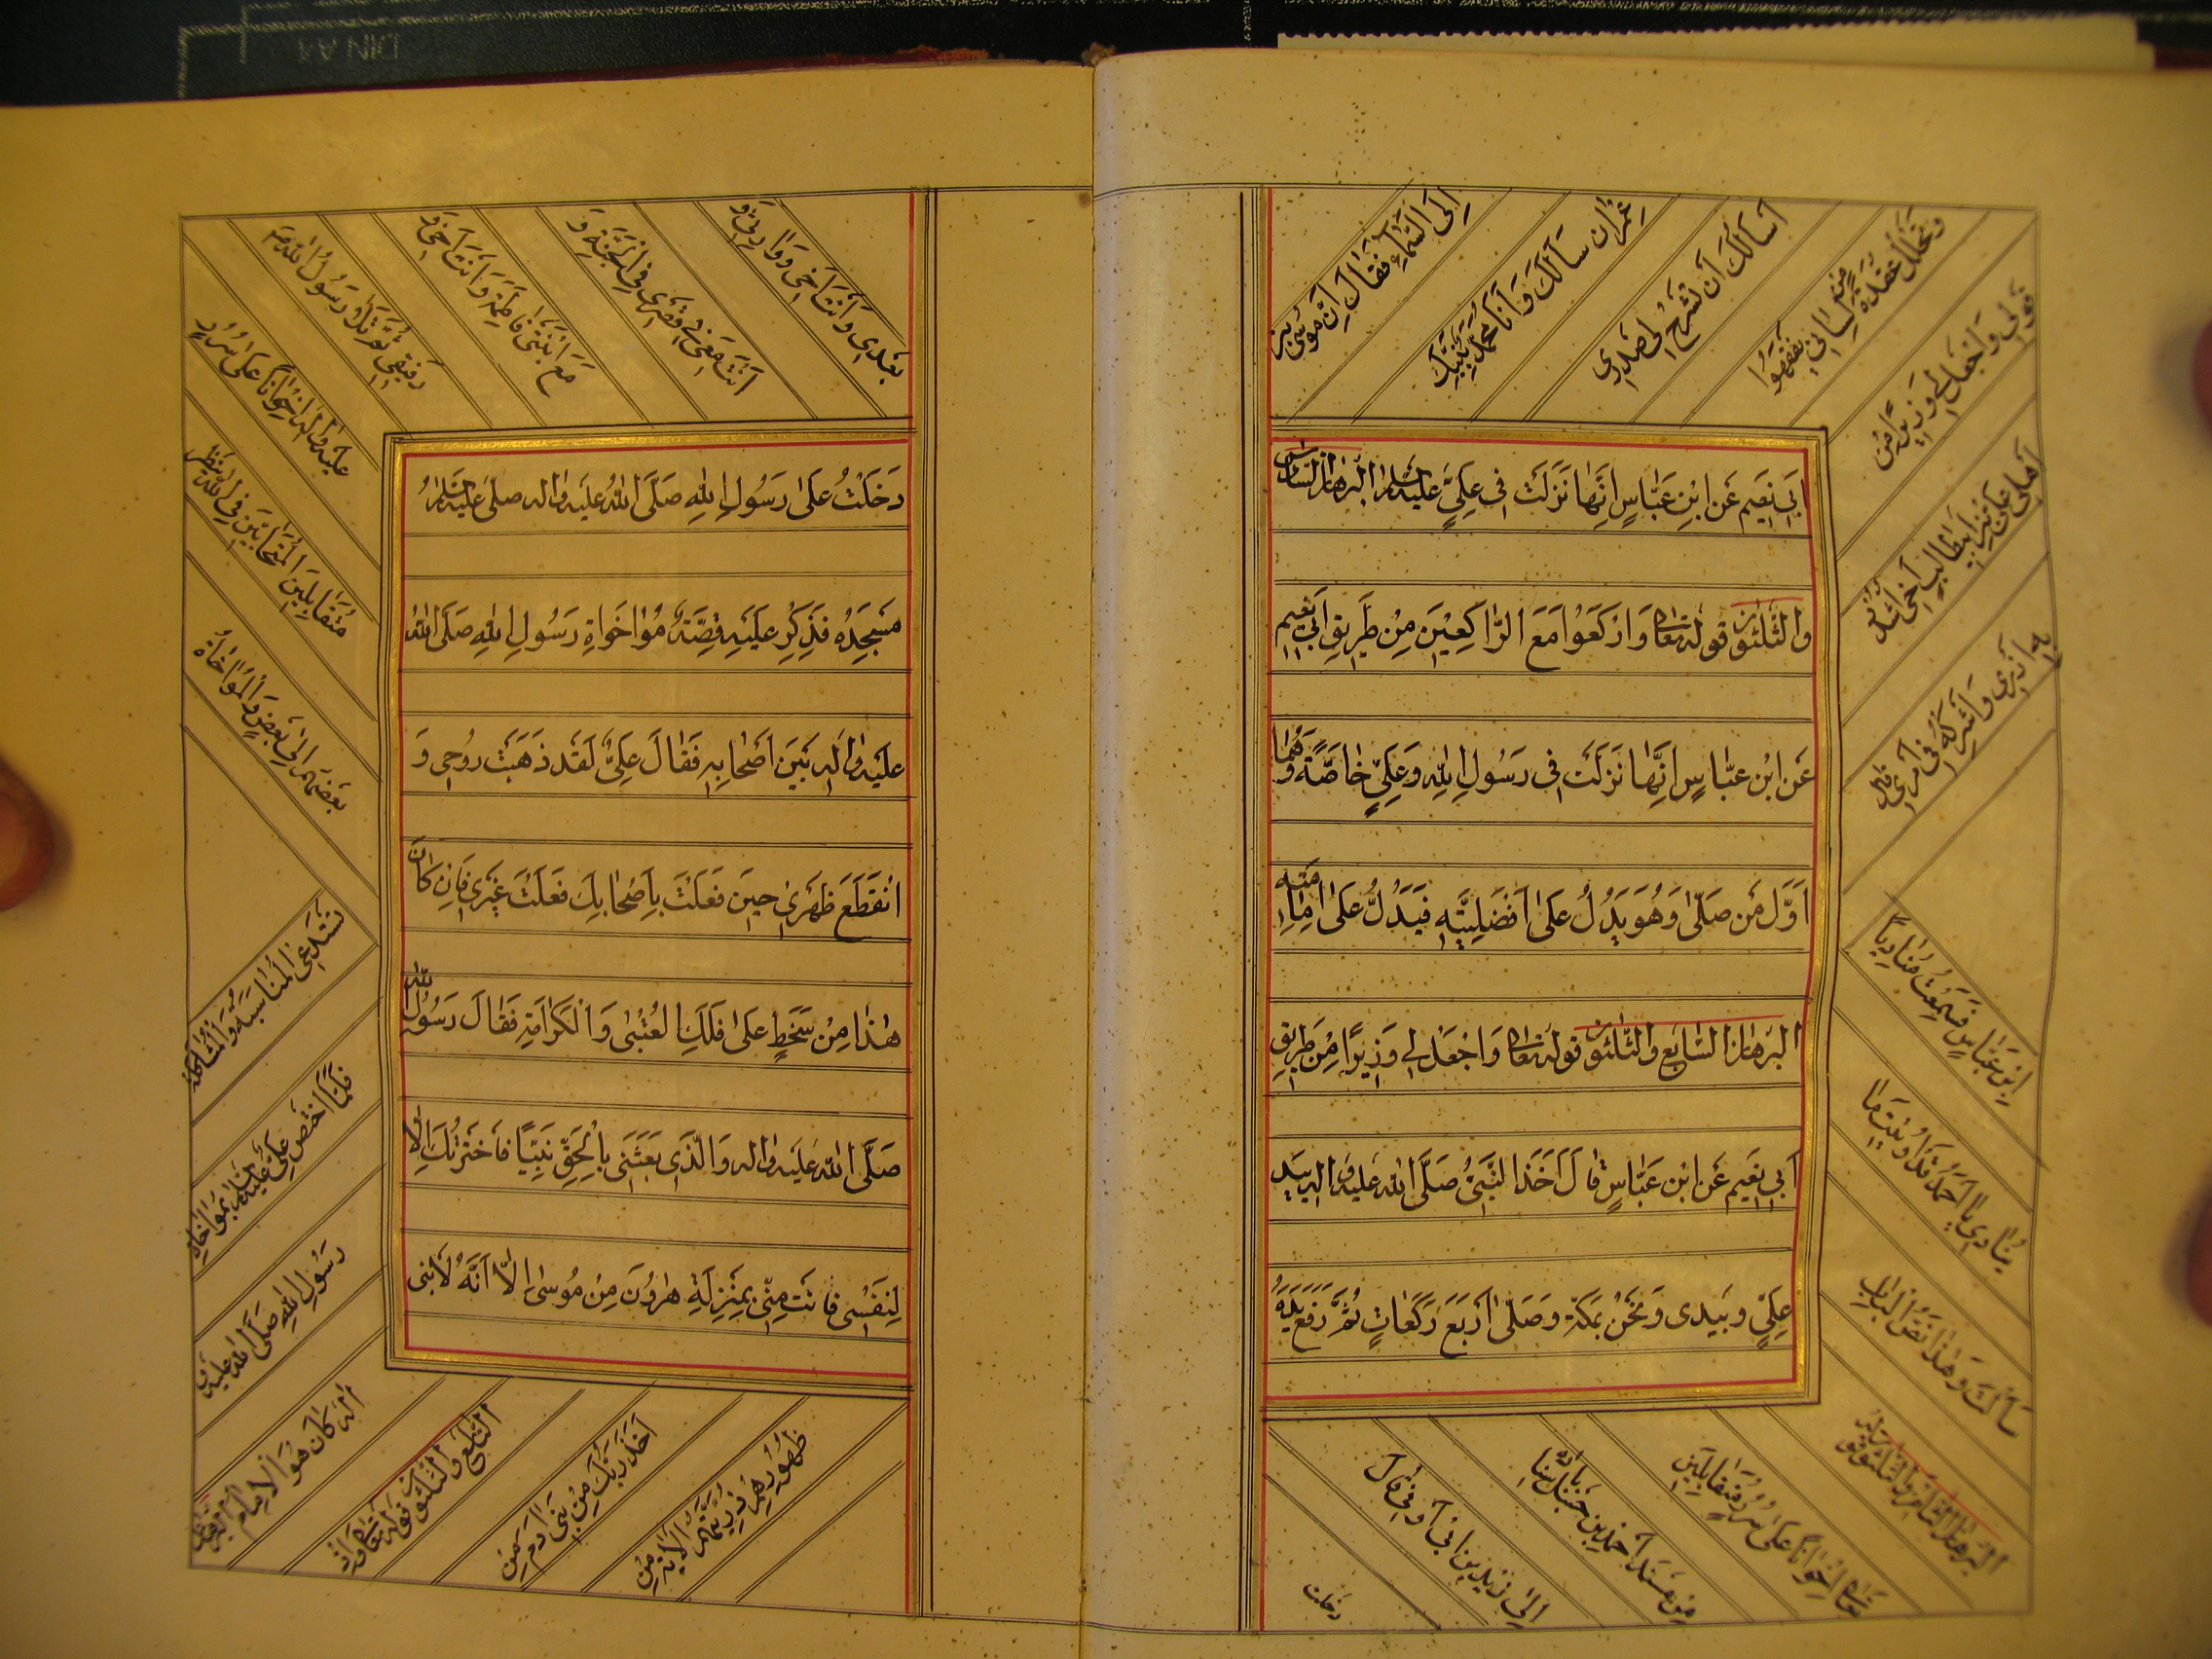 ابی نعیم عن ابن عباس انها نزلت فی علی علیه السلم البرهان السادس
والثلثون قوله تعالی وارکعوا مع الراکعین من طریق ابی نعیم
عن ابن عباس انها نزلت فی رسول الله وعلی خاصة وهما
اول من صلی وهو یدل علی افضلیته فیدل علی امامته
البرهان السابع والثلثون قوله تعالی واجعل لی وزیرا من طریق
ابی نعیم عن ابن عباس قال اخذ النبی صلی الله علیه واله بید
علی وبیدی ونحن بمکة وصلی اربع رکعات ثم رفع یده
الی السماء فقال ان موسی بن
عمران سالک وانا محمد نبیک
اسالک ان تشرح لی صدری
وتحلل عقدة من لسانی یفقهوا
قولی واجعل لی وزیرا من
اهلی علی بن ابیطالب اخی اشدد
به ازری واشرکه فی امری قال
ابن عباس فسمعت منادیا
ینادی یا احمد قد اوتیت ما
سالت وهذا نص الباب
البرهان الثامن والثلثون قوله
تعالی اخوانا علی سرر متقابلین
من مسند احمد بن حنبل باسناده
الی زید بن ابی اوفی قال
دخلت
دخلت علی رسول الله صلی الله علیه واله صلی علیه وسلم
مسجده فذکر علیه قصة مؤاخواة رسول الله صلی الله
علیه واله بین اصحابه فقال علی لقد ذهبت روحی و
انقطع ظهری حین فعلت باصحابک فعلت غیری فان کان
هذا من سخط علی فلک العتبی والکرامة فقال رسول الله
صلی الله علیه واله والذی بعثنی بالحق نبیا ما اخترتک الا
لنفسی فانت منی بمنزلة هرون من موسی الا انه لا نبی
بعدی وانت اخی ووارثی و
انت معی فی قصری فی الجنة و
مع ابنتی فاطمة وانت اخی و
رفیقی ثم تلا رسول الله صلی
علیه واله اخوانا علی سرر
متقابلین المتحابین فی الله ینظر
بعضهم الی بعض والمؤاخاة
تستدعی المناسبة والمشاکلة
فلما اختص علی علیه السلم بمؤاخاة
رسول الله صلی الله علیه و
اله کان هو الامام البرهان
التاسع والثلثون قوله تعالی واذ
اخذ ربک من بنی ادم من
ظهورهم ذریتهم الایة من